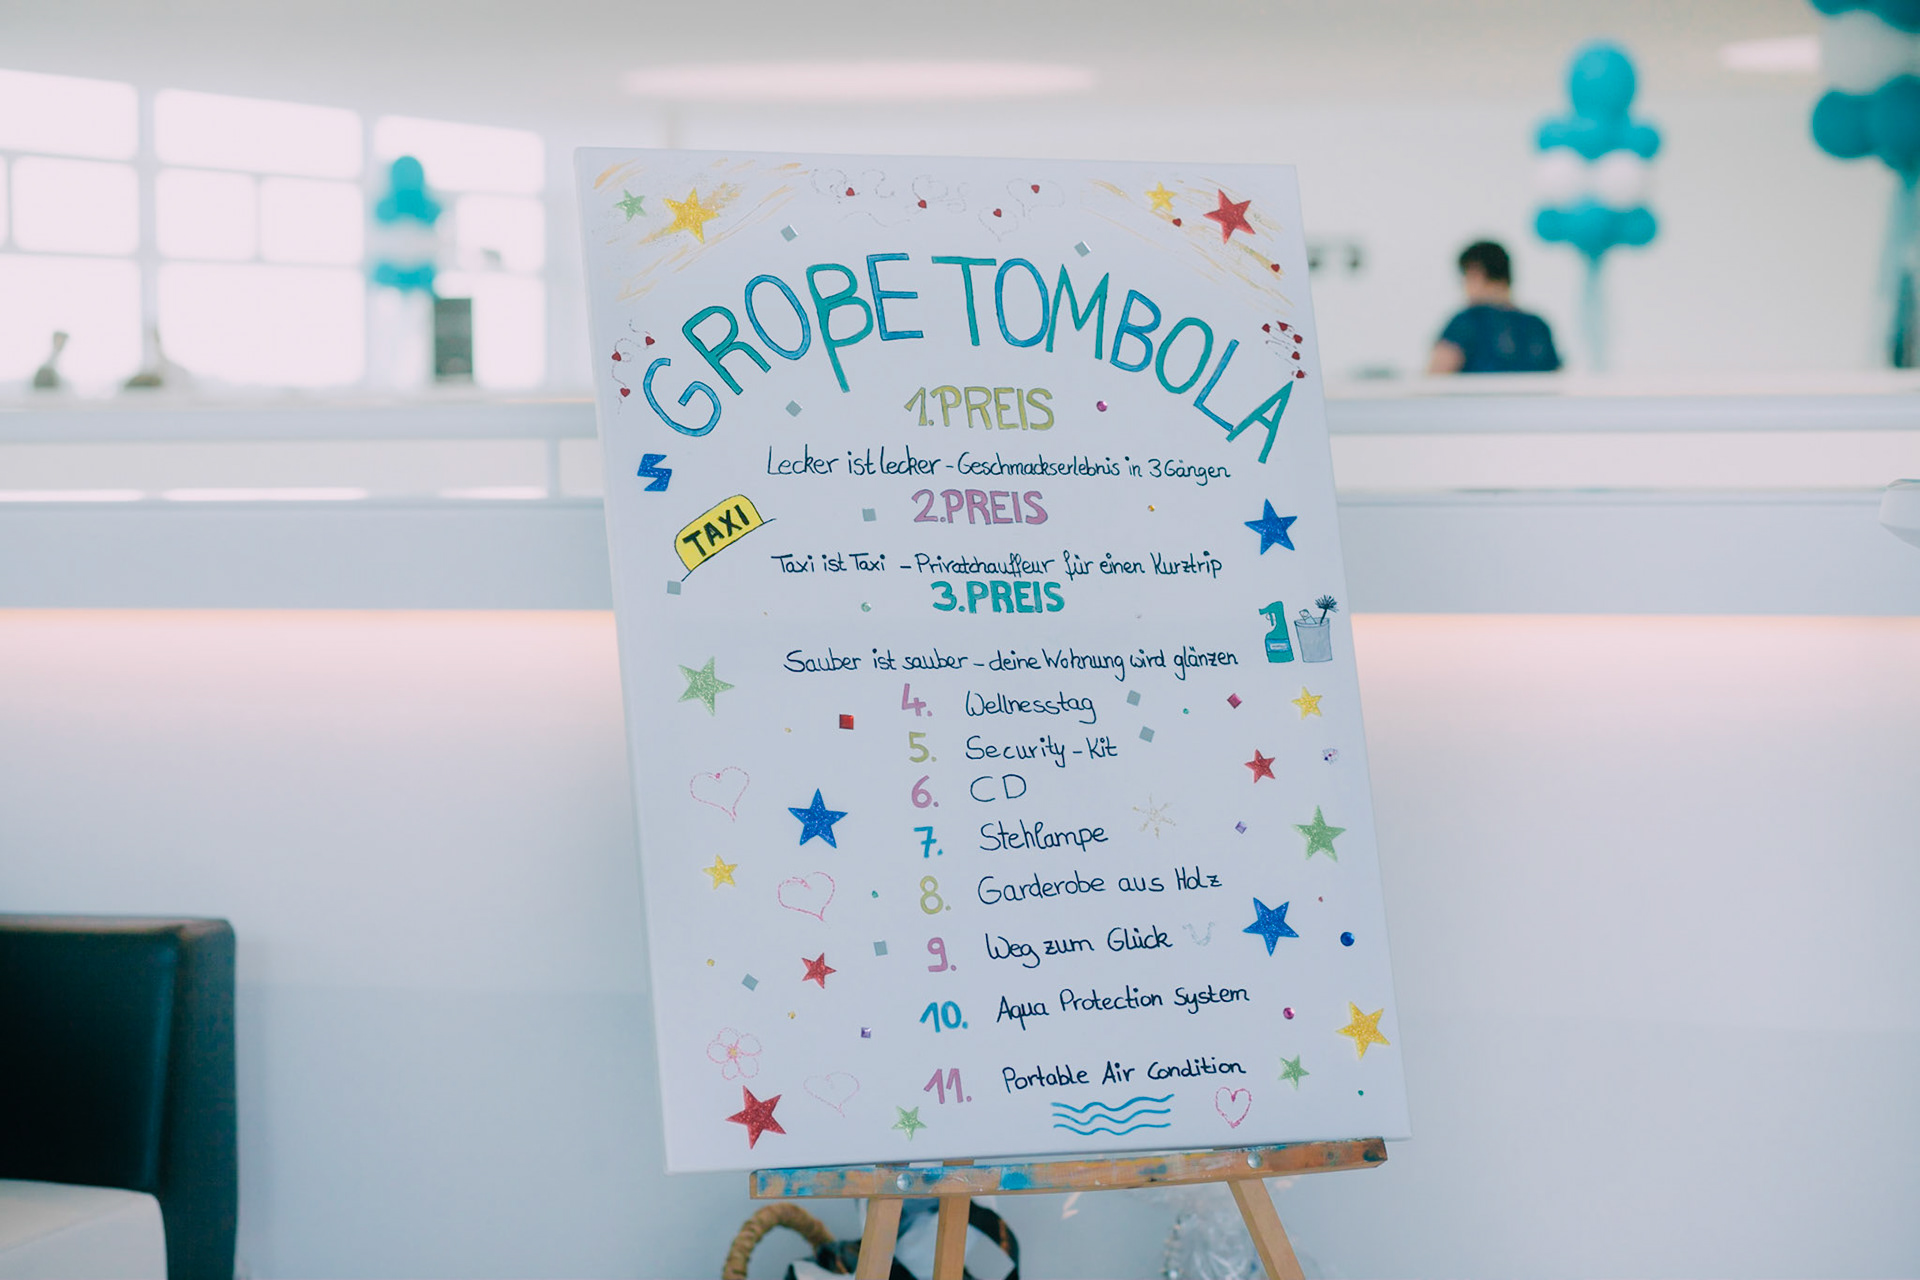 GROßE TOMBOLA
1. PREIS
Lecker ist lecker - Geschmackserlebnis in 3 Gängen
2. PREIS
TAXI
Taxi ist Taxi - Privatchauffeur für einen Kurztrip
3. PREIS
Sauber ist sauber - deine Wohnung wird glänzen
4. Wellnesstag
5. Security-Kit
6. CD
7. Stehlampe
8. Garderobe aus Holz
9. Weg zum Glück
10. Aqua Protection System
11. Portable Air Condition